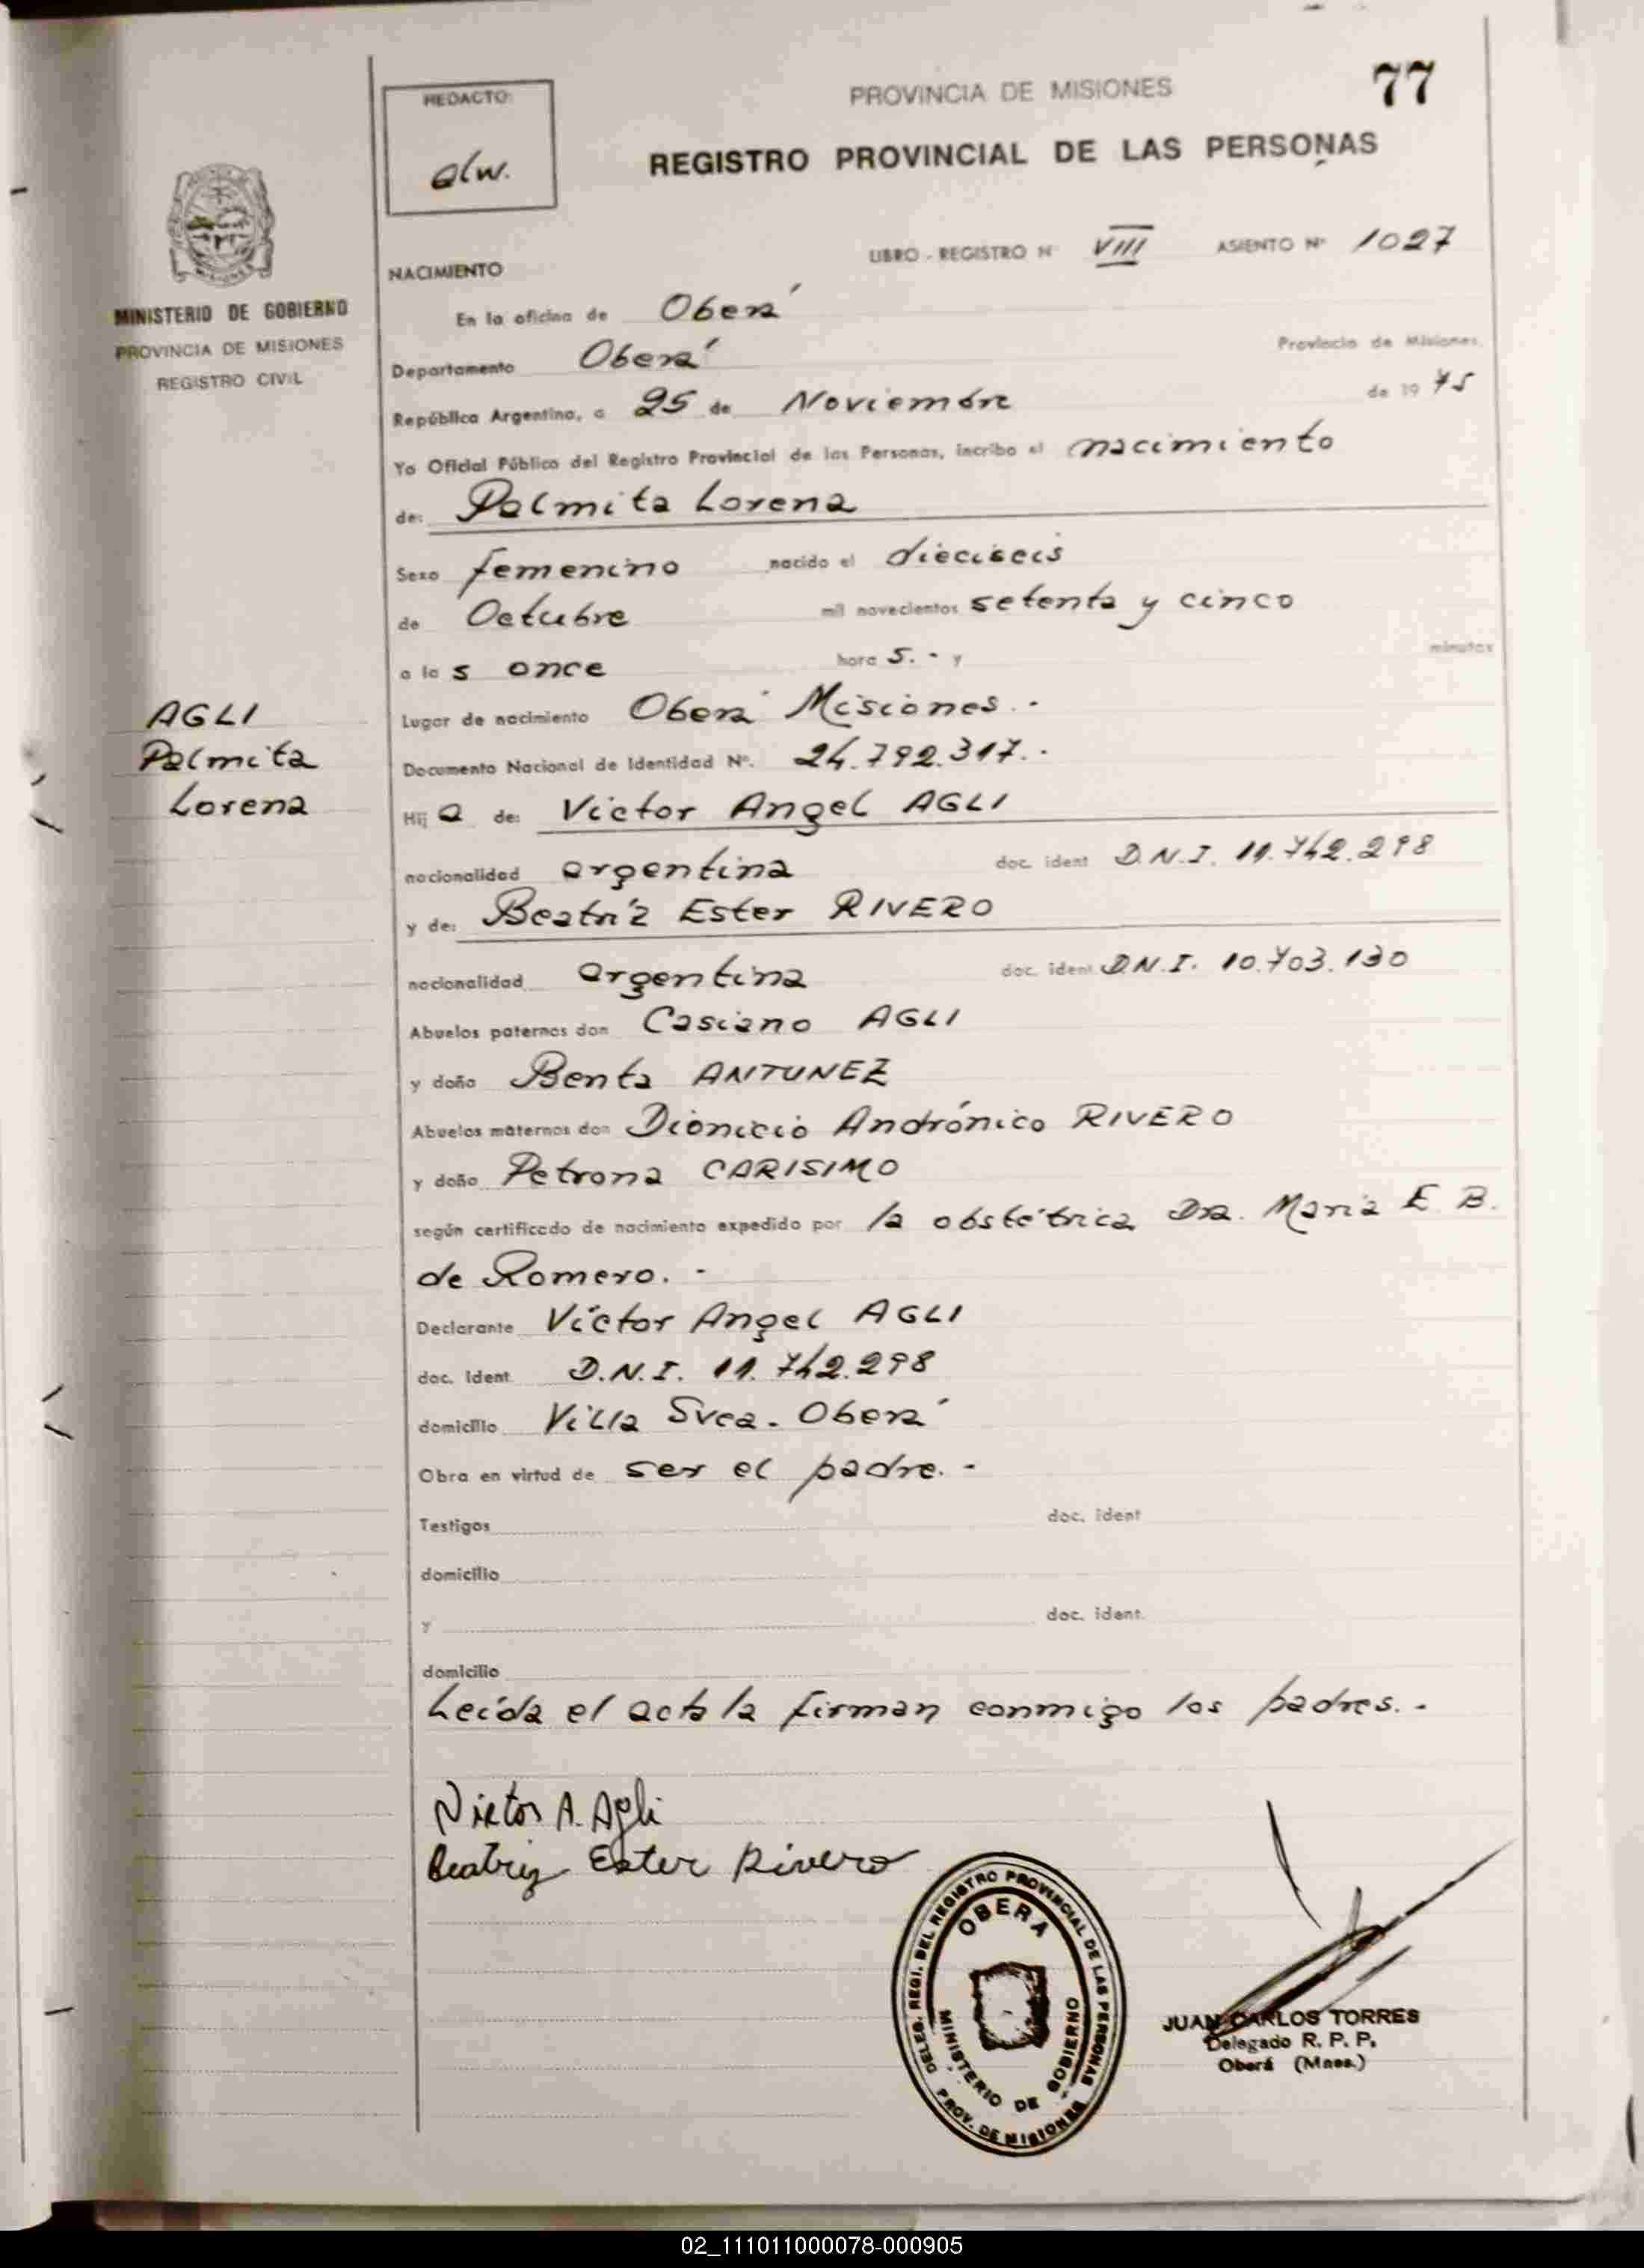 77
PROVINCIA DE MISIONES
REGISTRO PROVINCIAL DE LAS PERSONAS
REDACTO:
MISIONES
MINISTERIO DE GOBIERNO
PROVINCIA DE MISIONES
REGISTRO CIVIL
LIBRO - REGISTRO Nº VIII ASIENTO Nº 1027
NACIMIENTO
En la oficina de Oberá
Departamento Oberá Provincia de Misiones,
República Argentina, a 25 de Noviembre de 19 75
Yo Oficial Público del Registro Provincial de las Personas, incribo el nacimiento
de: Palmita Lorena
Sexo femenino nacido el dieciseis
de Octubre mil novecientos setenta y cinco
a la s once hora s. - y minutos
Lugar de nacimiento Oberá Misiones. -
Documento Nacional de Identidad Nº. 24.792.317. -
AGLI
Palmita
Lorena
Hij a de: Victor Angel AGLI
nacionalidad argentina doc. ident D.N.I. 11.742.298
y de: Beatríz Ester RIVERO
nacionalidad argentina doc. ident. D.N.I. 10.703.130
Abuelos paternos don Casiano AGLI
y doña Benta ANTUNEZ
Abuelos maternos don Dionicio Andrónico RIVERO
y doña Petrona CARISIMO
según certificado de nacimiento expedido por la obstétrica Dra. Maria E. B.
de Romero. -
Declarante Víctor Angel AGLI
doc. ident. D.N.I. 11.742.298
domicilio Villa Svea - Oberá
Obra en virtud de ser el padre. -
Testigos doc. ident
domicilio
y doc. ident.
domicilio
Leída el acta la firman conmigo los padres. -
Victor A. Agli
Beatriz Ester Rivero
DELEG. REGI. DEL REGISTRO PROVINCIAL DE LAS PERSONAS
OBERA
MINISTERIO DE GOBIERNO
PROV. DE MISIONES
JUAN CARLOS TORRES
Delegado R. P. P.
Oberá (Mnes.)
02_111011000078-000905